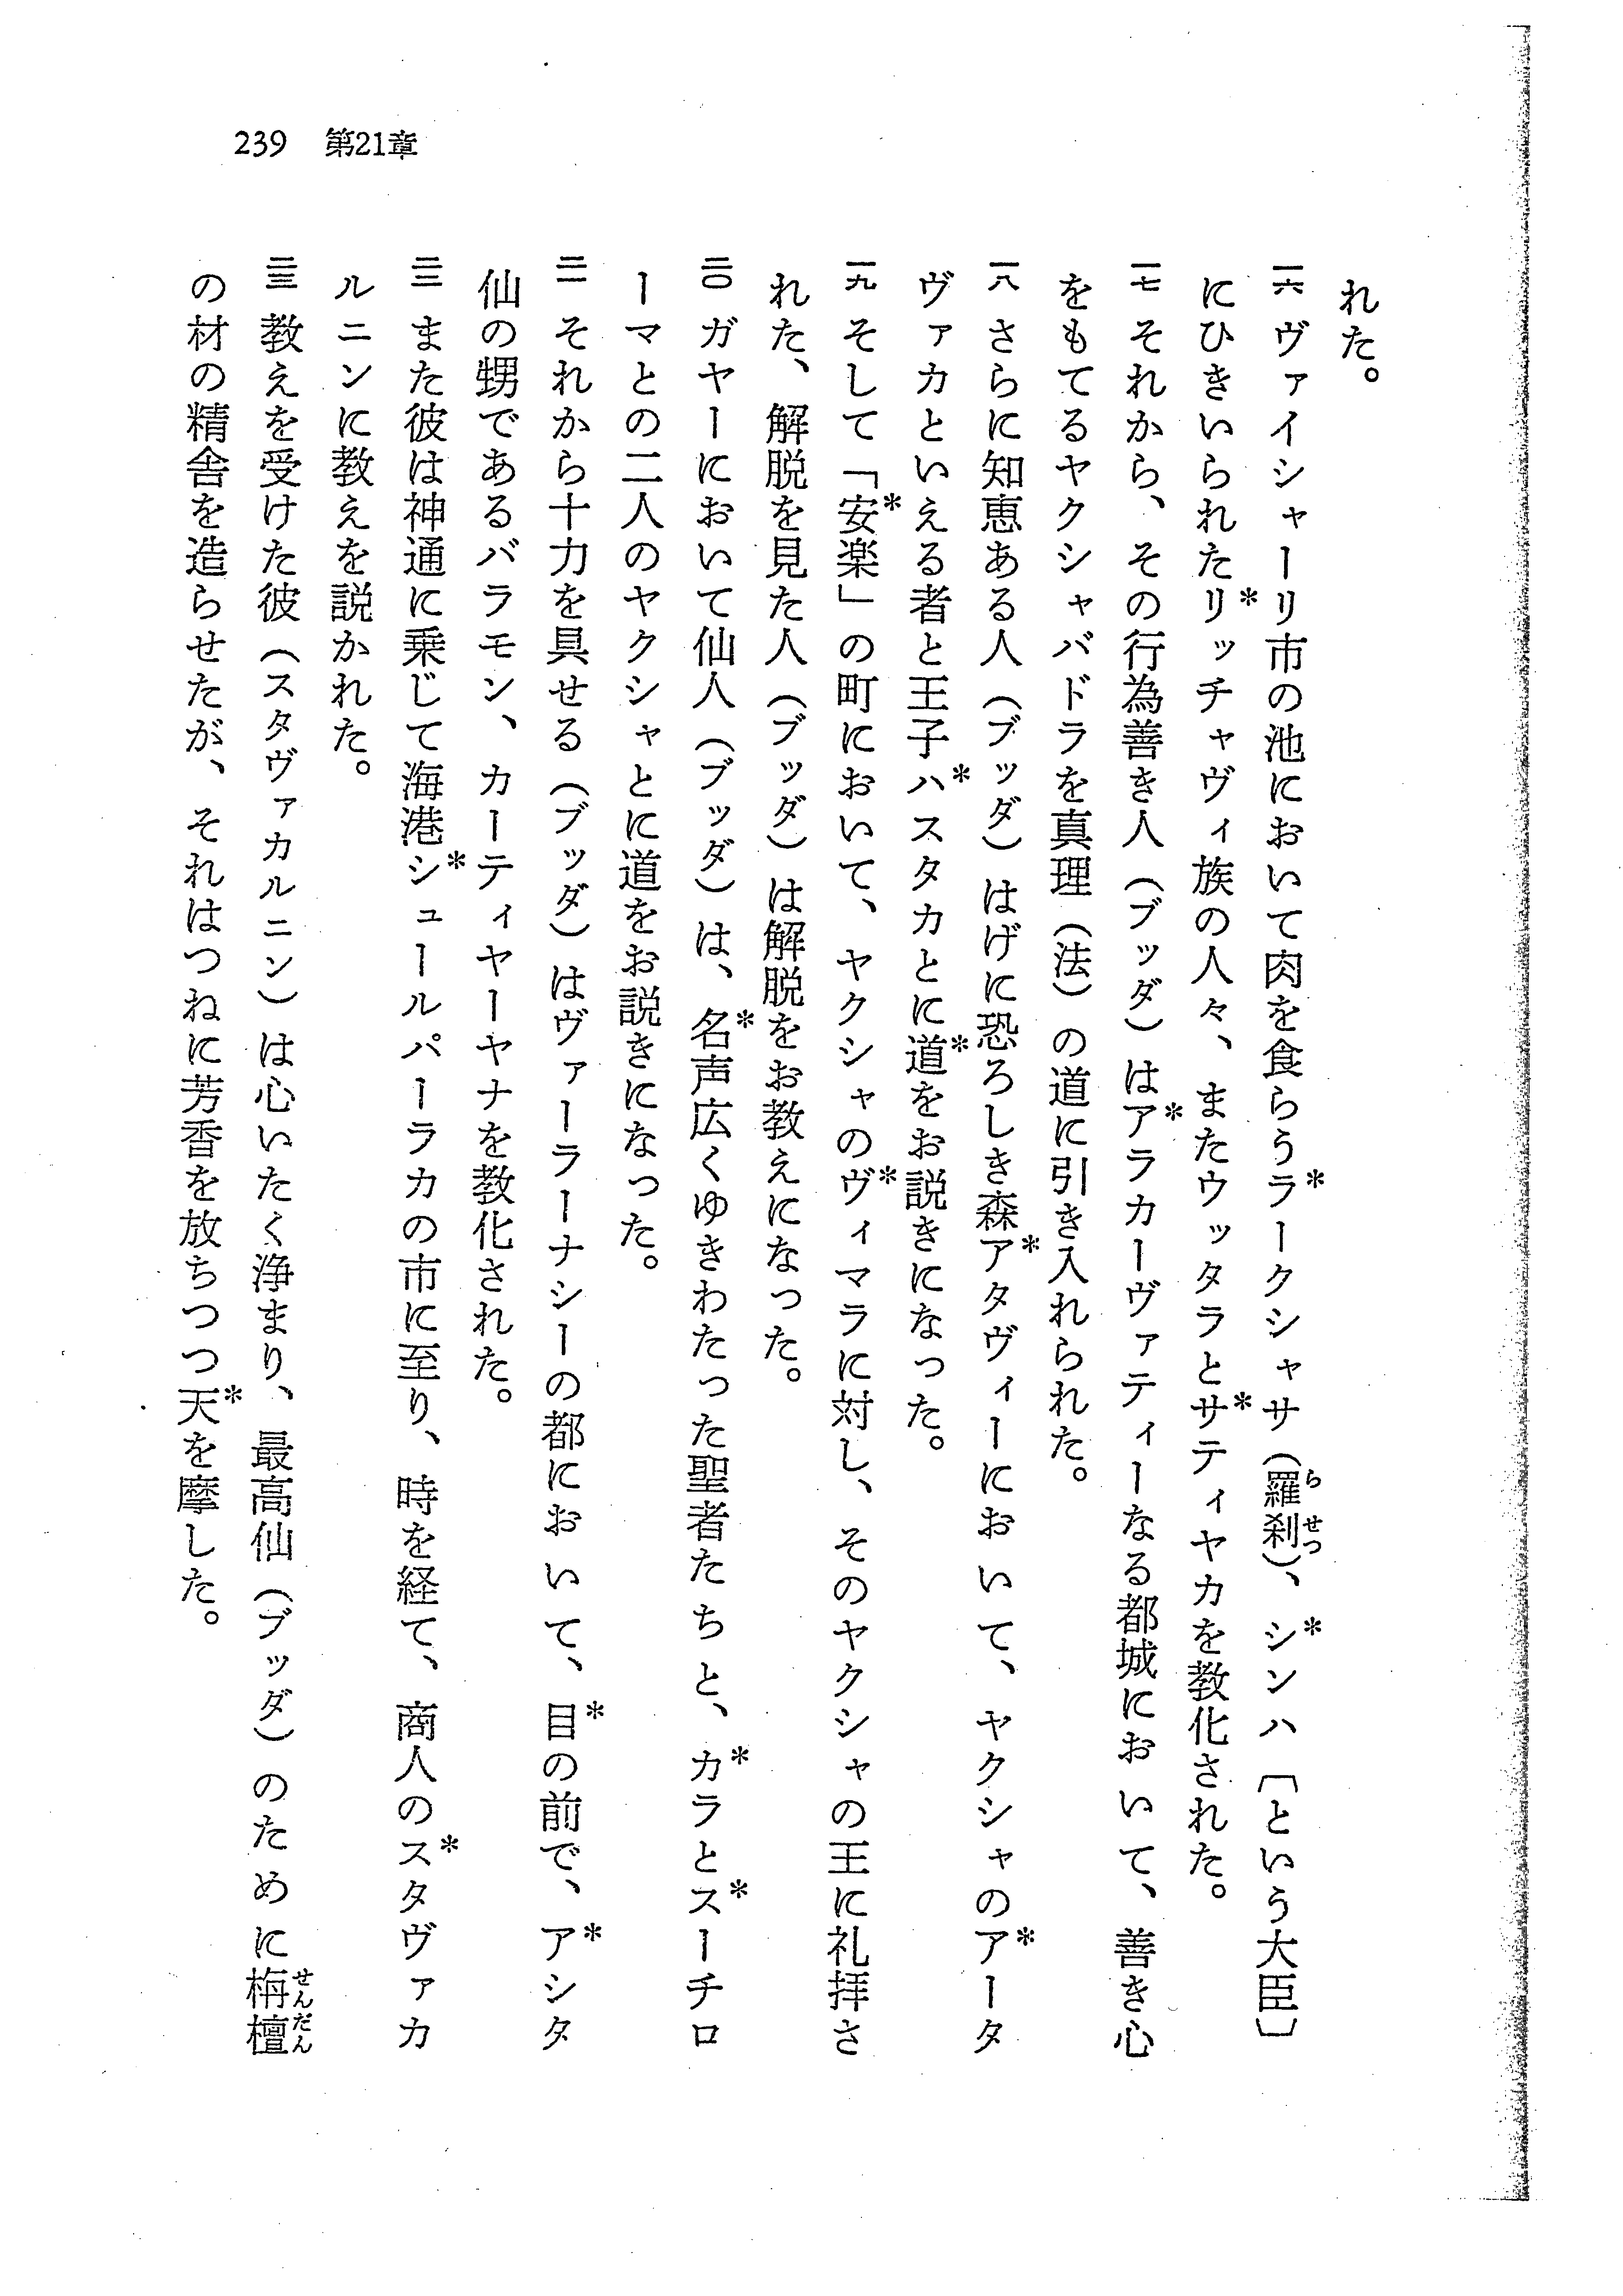 239 第21章
れた。
一六 ヴァイシャーリ市の池において肉を食らうラ*ークシャサ（羅刹）、シ*ンハ〔という大臣〕
にひきいられたリ*ッチャヴィ族の人々、またウッタラとサ*ティヤカを教化された。
一七 それから、その行為善き人（ブッダ）はア*ラカーヴァティーなる都城において、善き心
をもてるヤクシャバドラを真理（法）の道に引き入れられた。
一八 さらに知恵ある人（ブッダ）はげに恐ろしき森ア*タヴィーにおいて、ヤクシャのア*ータ
ヴァカといえる者と王子ハ*スタカとに道*をお説きになった。
一九 そして「安*楽」の町において、ヤクシャのヴ*ィマラに対し、そのヤクシャの王に礼拝さ
れた、解脱を見た人（ブッダ）は解脱をお教えになった。
二〇 ガヤーにおいて仙人（ブッダ）は、名*声広くゆきわたった聖者たちと、カ*ラとス*ーチロ
ーマとの二人のヤクシャとに道をお説きになった。
二一 それから十力を具せる（ブッダ）はヴァーラーナシーの都において、目*の前で、ア*シタ
仙の甥であるバラモン、カーティヤーヤナを教化された。
二二 また彼は神通に乗じて海港シ*ュールパーラカの市に至り、時を経て、商人のス*タヴァカ
ルニンに教えを説かれた。
二三 教えを受けた彼（スタヴァカルニン）は心いたく浄まり、最高仙（ブッダ）のために栴檀
の材の精舎を造らせたが、それはつねに芳香を放ちつつ天*を摩した。